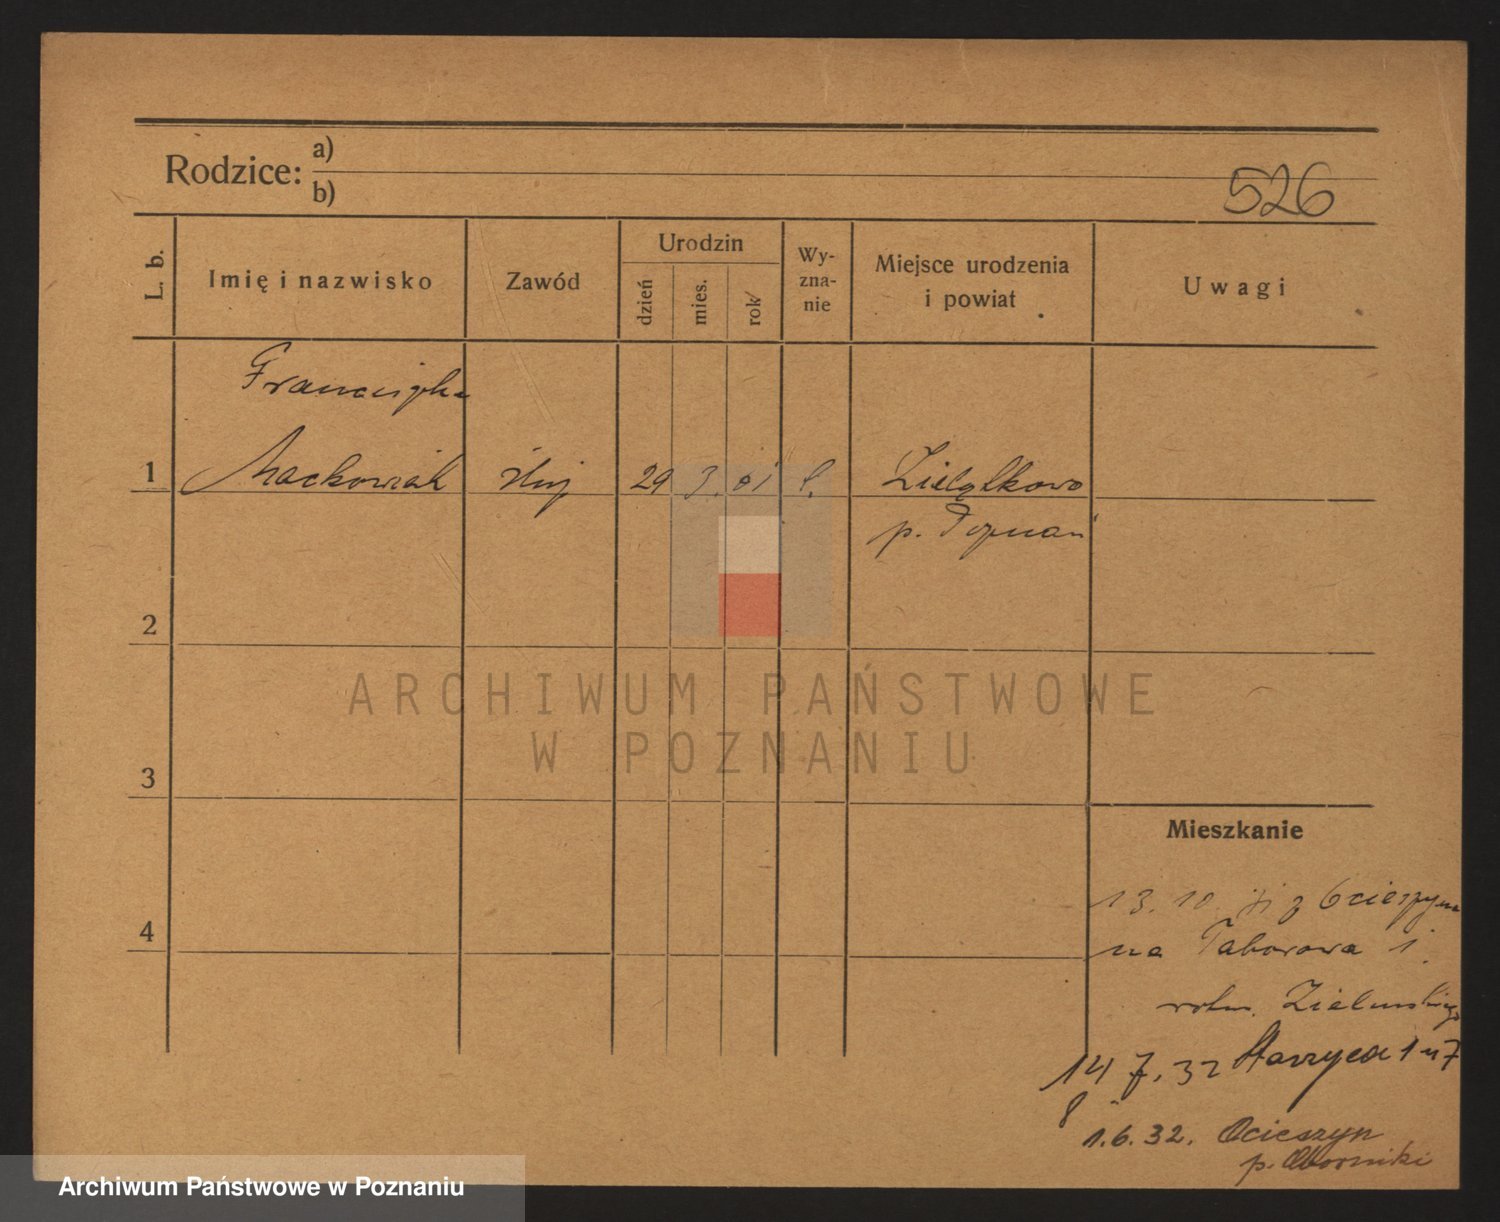 Rodzice: a)
b)
526
L. b.
Imię i nazwisko
Zawód
Urodzin
dzień
mies.
rok
Wy-
zna-
nie
Miejsce urodzenia
i powiat
Uwagi
Franciszka
1 Maćkowiak służ 29 3. 01 k. Zielątkowo
p. Poznań
2
3
4
ARCHIWUM PAŃSTWOWE
W POZNANIU
Mieszkanie
13. 10. 31 z Ocieszyna
na Taborowa 1.
14 7. 32
1.6.32. Ocieszyn
p. Oborniki
Archiwum Państwowe w Poznaniu